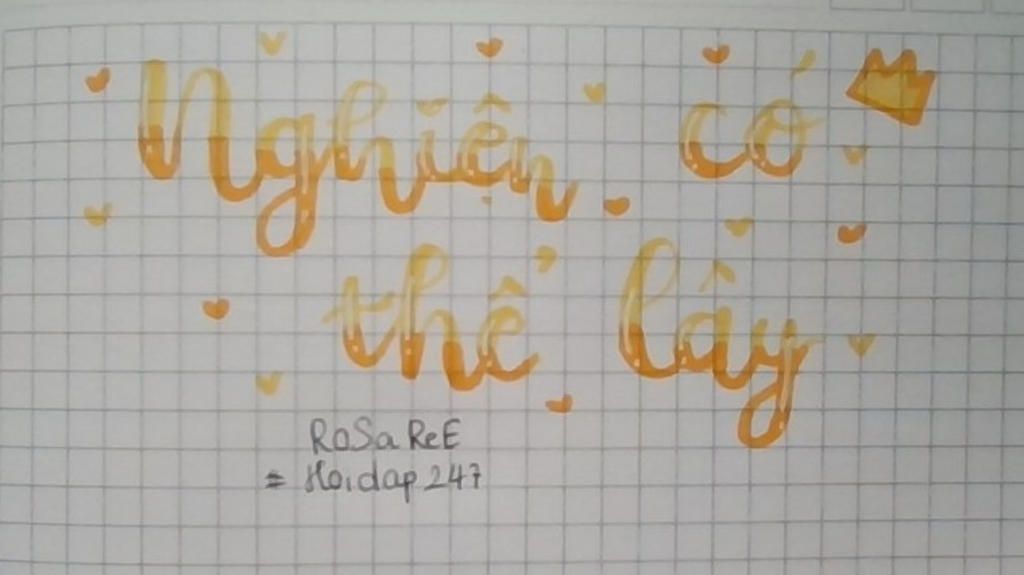 Nghiện có
thể lây
RoSa ReE
= Hoidap 247